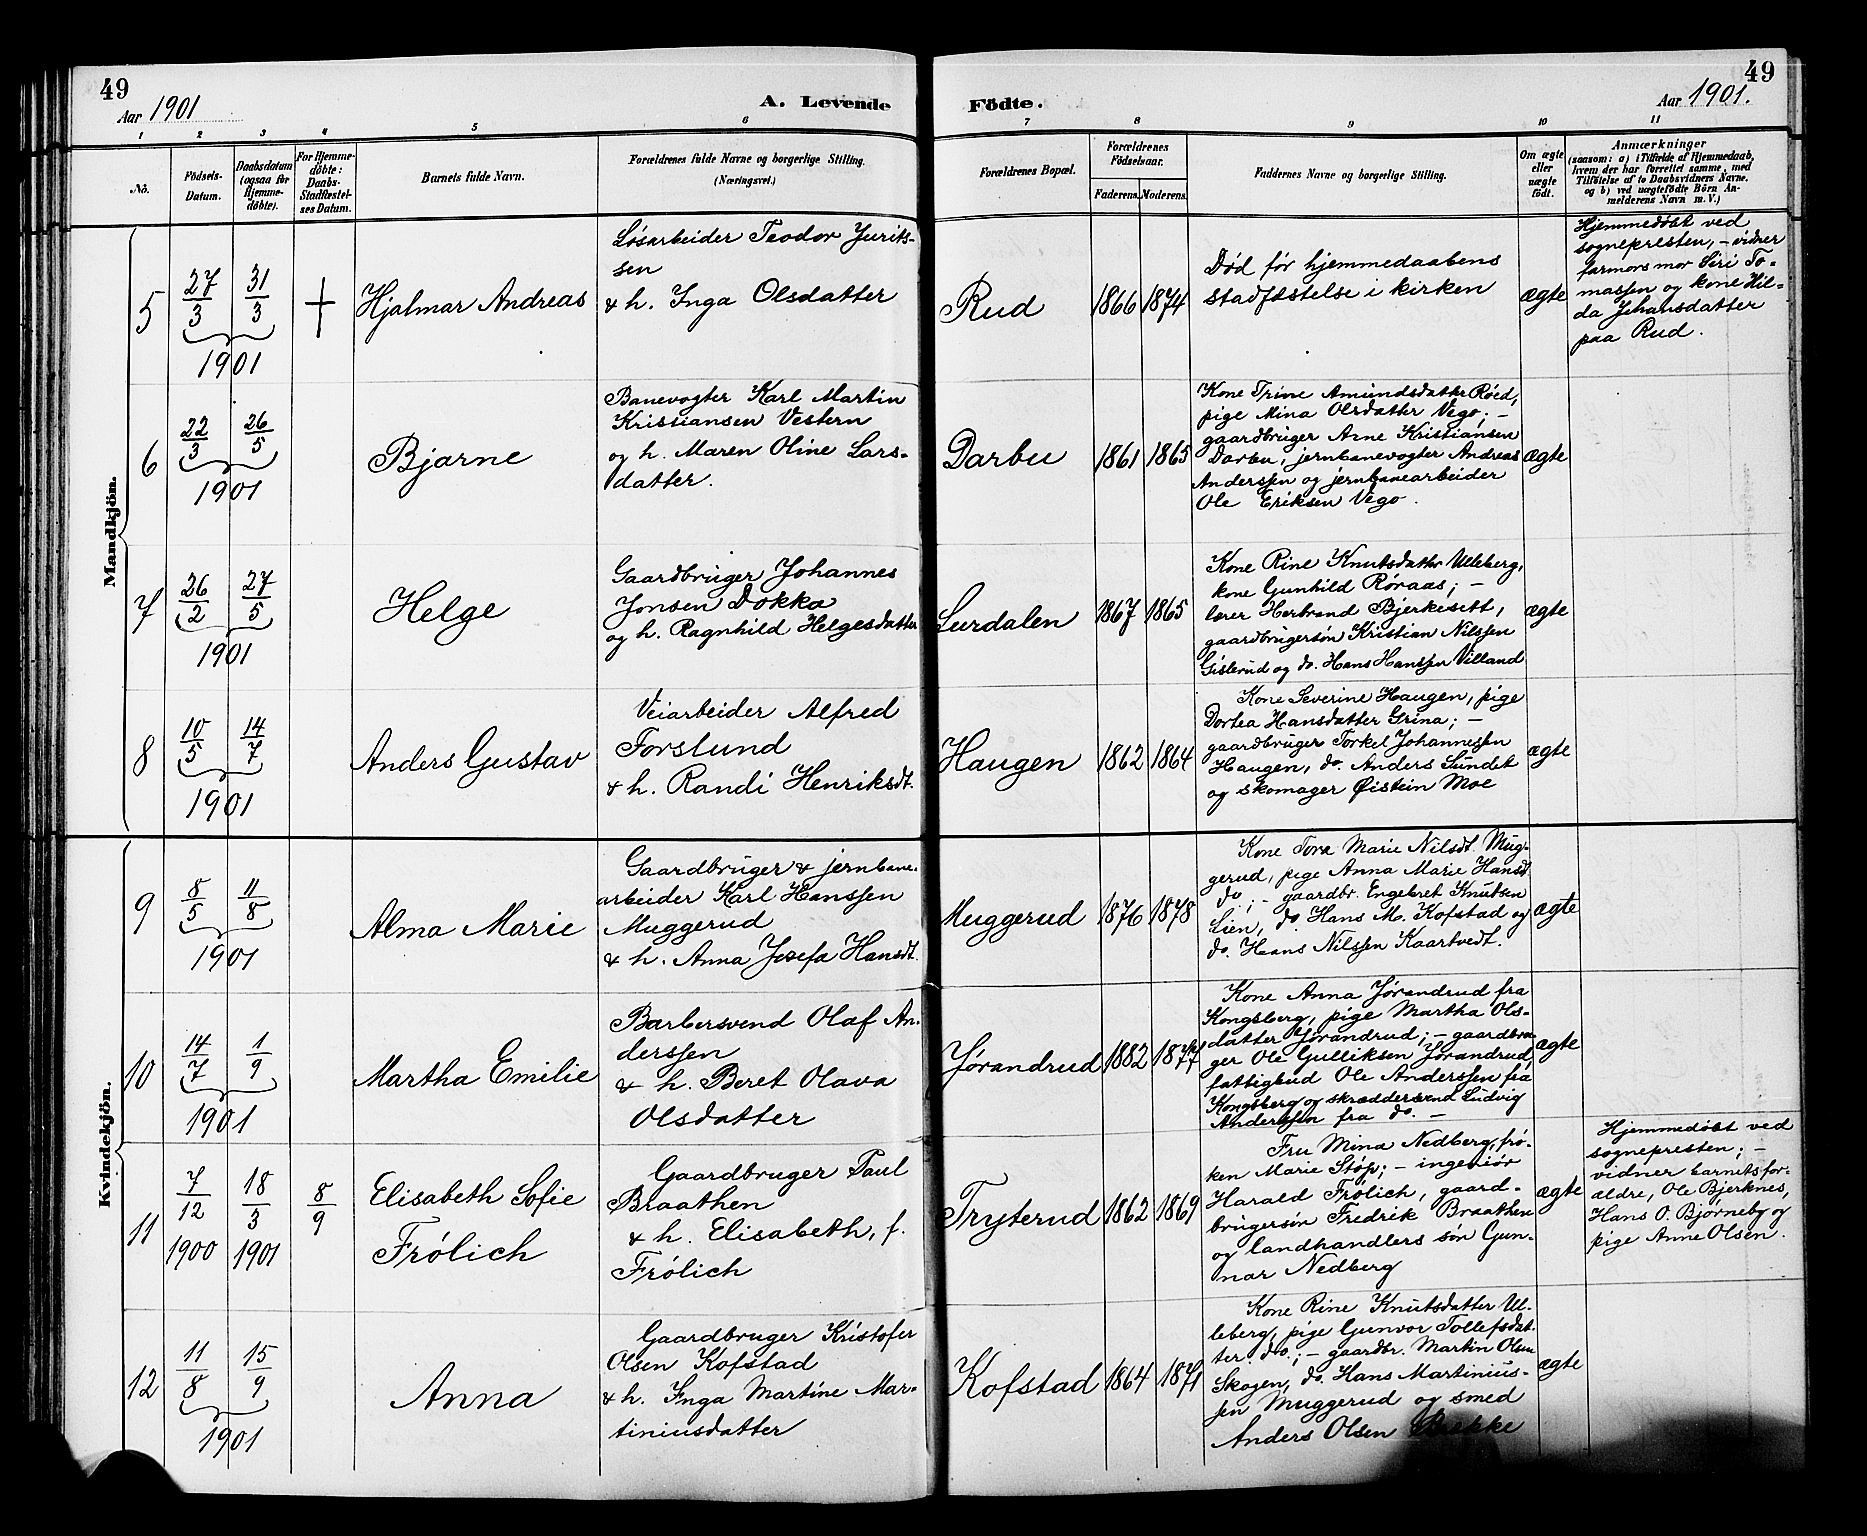 49
Aar 1901
A. Levende
Födte.
49
Aar 1901.
1
2
3
4
5
6
7
8
9
10
11
No.
Födsels-
Datum.
Daabsdatum
(ogsaa for
Hjemme-
döbte).
For Hjemme-
döbte:
Daabs-
Stadfæstel-
ses Datum.
Barnets fulde Navn.
Forældrenes fulde Navne og borgerlige Stilling.
(Næringsvei.)
Forældrenes Bopæl.
Forældrenes
Födselsaar.
Faderens.
Moderens.
Faddernes Navne og borgerlige Stilling.
Om ægte
eller
uægte
födt.
Anmærkninger
(saasom: a) i Tilfælde af Hjemmedaab,
hvem der har forrettet samme, med
Tilföielse af to Daabsvidners Navne.
og b) ved uægtefödte Börn An-
melderens Navn m. V.)
Mandkjön.
5
27/3
31/3
1901
†
Hjalmar Andreas
Løsarbeider Teodor Jurits-
sen
& h. Inga Olsdatter
Rud
1866
1874
Død før hjemmedaabens
stadfæstelse i kirken
ægte
Hjemmedøbt ved
sognepresten, – vidner
farmors mor Siri To-
massen og kone Hil-
da Johansdatter
paa Rud.
6
22/3
26/5
1901
Bjarne
Banevogter Karl Martin
Kristiansen Vestern
og h. Maren Oline Lars-
datter.
Darbu
1861
1865
Kone Trine Amundsdatter Røed,
pige Mina Olsdatter Vego; –
gaardbruger Arne Kristiansen
Darbu, jernbanevogter Andreas
Anderssen og jernbanearbeider
Ole Eriksen Vego.
ægte
7
26/2
27/5
1901
Helge
Gaardbruger Johannes
Jonsen Dokka
og h. Ragnhild Helgesdatter
Lurdalen
1867
1865
Kone Rine Knutsdatter Ulleberg,
kone Gunhild Røraas; –
lærer Herbrand Bjerkesett,
gaardbrugersøn Kristian Nilssen
Gislerud og do. Hans Hanssen Villand
ægte
8
10/5
14/7
1901
Anders Gustav
Veiarbeider Alfred
Forslund
& h. Randi Henriksdt.
Haugen
1862
1864
Kone Severine Haugen, pige
Dortea Hansdatter Grina; –
gaardbruger Torkel Johannessen
Haugen, do. Anders Sundet
og skomager Øistein Moe
ægte
Kvindekjön.
9
8/5
11/8
1901
Alma Marie
Gaardbruger & jernbane-
arbeider Karl Hanssen
Muggerud
& h. Anna Josefa Hansdt.
Muggerud
1876
1878
Kone Tora Marie Nilsdt. Mug-
gerud, pige Anna Marie Hansd.
do.; – gaardbr. Engebret Knutsen
Lien, do. Hans M. Kofstad og
do. Hans Nilssen Kaartvedt.
ægte
10
14/7
1/9
1901
Martha Emilie
Barbersvend Olaf An-
derssen
& h. Beret Olava
Olsdatter
Jørandrud
1882
1877
Kone Anna Jørandrud fra
Kongsberg, pige Martha Ols-
datter Jørandrud; – gaardbru-
ger Ole Gulliksen Jørandrud,
fattigbud Ole Anderssen fra
Kongsberg og skræddersvend Ludvig
Anderssen fra do. –
ægte
11
7/12
1900
18/3
1901
8/9
Elisabeth Sofie
Frólich
Gaardbruger Paul
Braathen
& h. Elisabeth, f.
Frólich
Tryterud
1862
1869
Fru Mina Nedberg, frø-
ken Marie Støp; – ingeniør
Harald Frólich, gaard-
brugersøn Fredrik Braathen
og landhandlers søn Gun-
nar Nedberg
ægte
Hjemmedøbt ved
sognepresten; –
vidner barnets for-
ældre, Ole Bjerknes,
Hans O. Bjørneby og
pige Anne Olsen.
12
11/8
15/9
1901
Anna
Gaardbruger Kristofer
Olsen Kofstad
& h. Inga Martine Mar-
tiniusdatter
Kofstad
1864
1871
Kone Rine Knutsdatter Ul-
leberg, pige Gunvor Tollefsdat-
ter do.; – gaardbr. Martin Olsen
Skogen, do. Hans Martinius-
sen Muggerud og smed
Anders Olsen Bakke
ægte